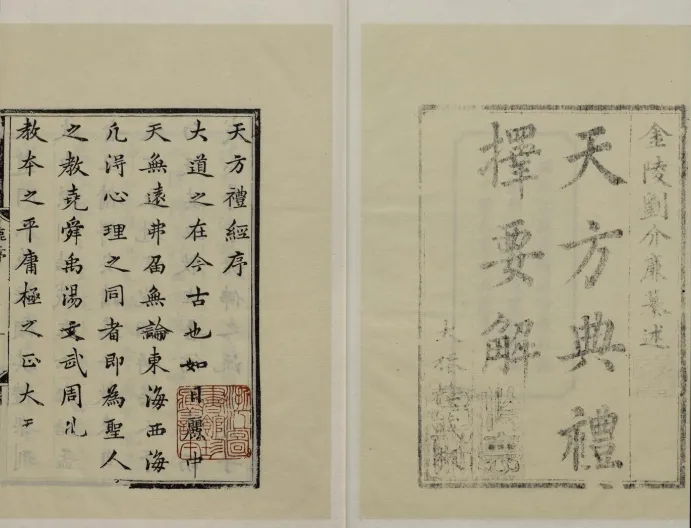 金陵劉介廉纂述
天方典禮
擇要解
天方禮經序
大道之在今古也如日麗中
天無遠弗屆無論東海西海
凡淂心理之同者即為聖人
之教堯舜禹湯文武周孔
教本之平庸極之正大
浙江圖
書館珍
藏善本